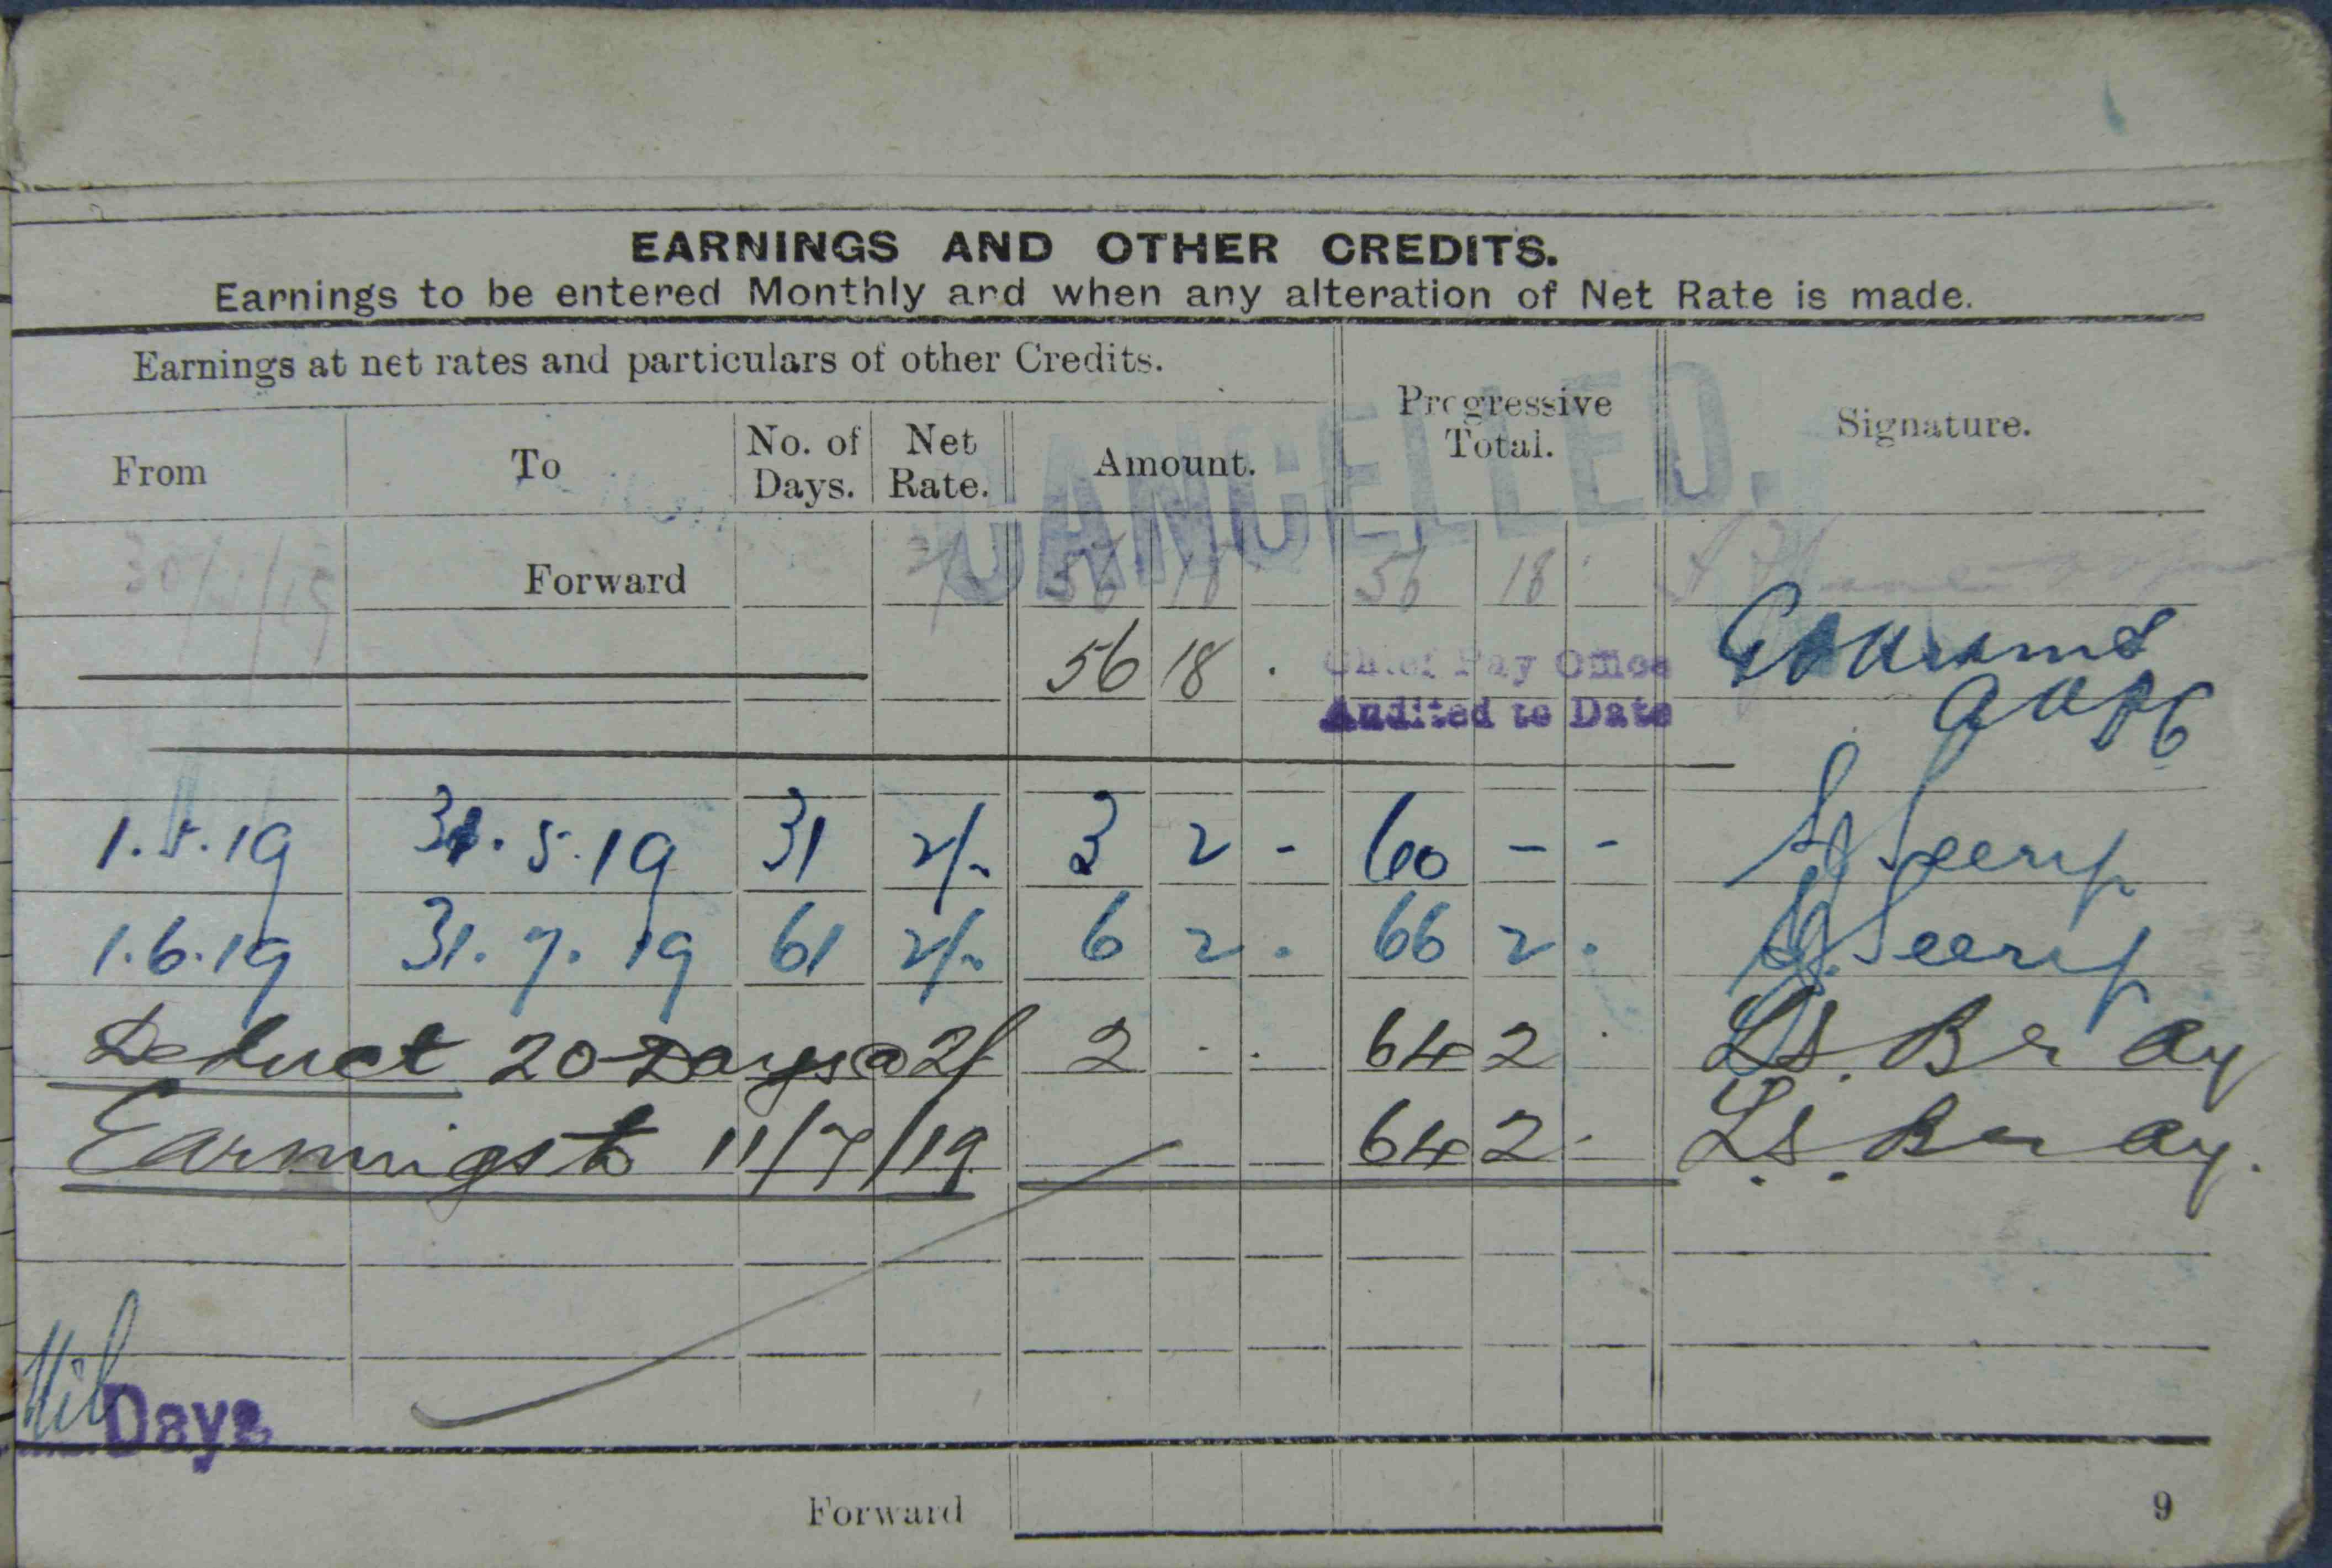 EARNINGS AND OTHER CREDITS.
Earnings to be entered Monthly and when any alteration of Net Rate is made.
Earnings at net rates and particulars of other Credits.
Progressive Total.
Signature.
From To No. of Days. Net Rate. Amount.
CANCELLED.
30/4/19 Forward 56 18 56 18
56 18 . Chief Pay Office
Audited to Date
1.5.19 31.5.19 31 2/- 3 2 - 60 - -
1.6.19 31.7.19 61 2/- 6 2 . 66 2 .
Deduct 20 Days @ 2/ 2 . . 64 2 . L.S. Bray
Earnings to 11/7/19 64 2 - L.S. Bray.
Nil Days
Forward
9